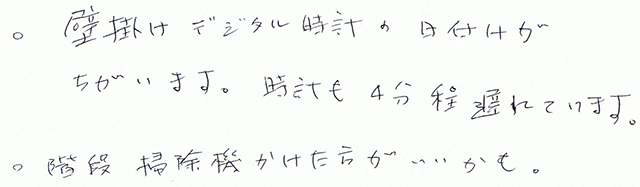 ○ 壁掛け デジタル時計の日付けが
ちがいます。 時計も 4分程 遅れています。
○ 階段 掃除機かけた方がいいかも。